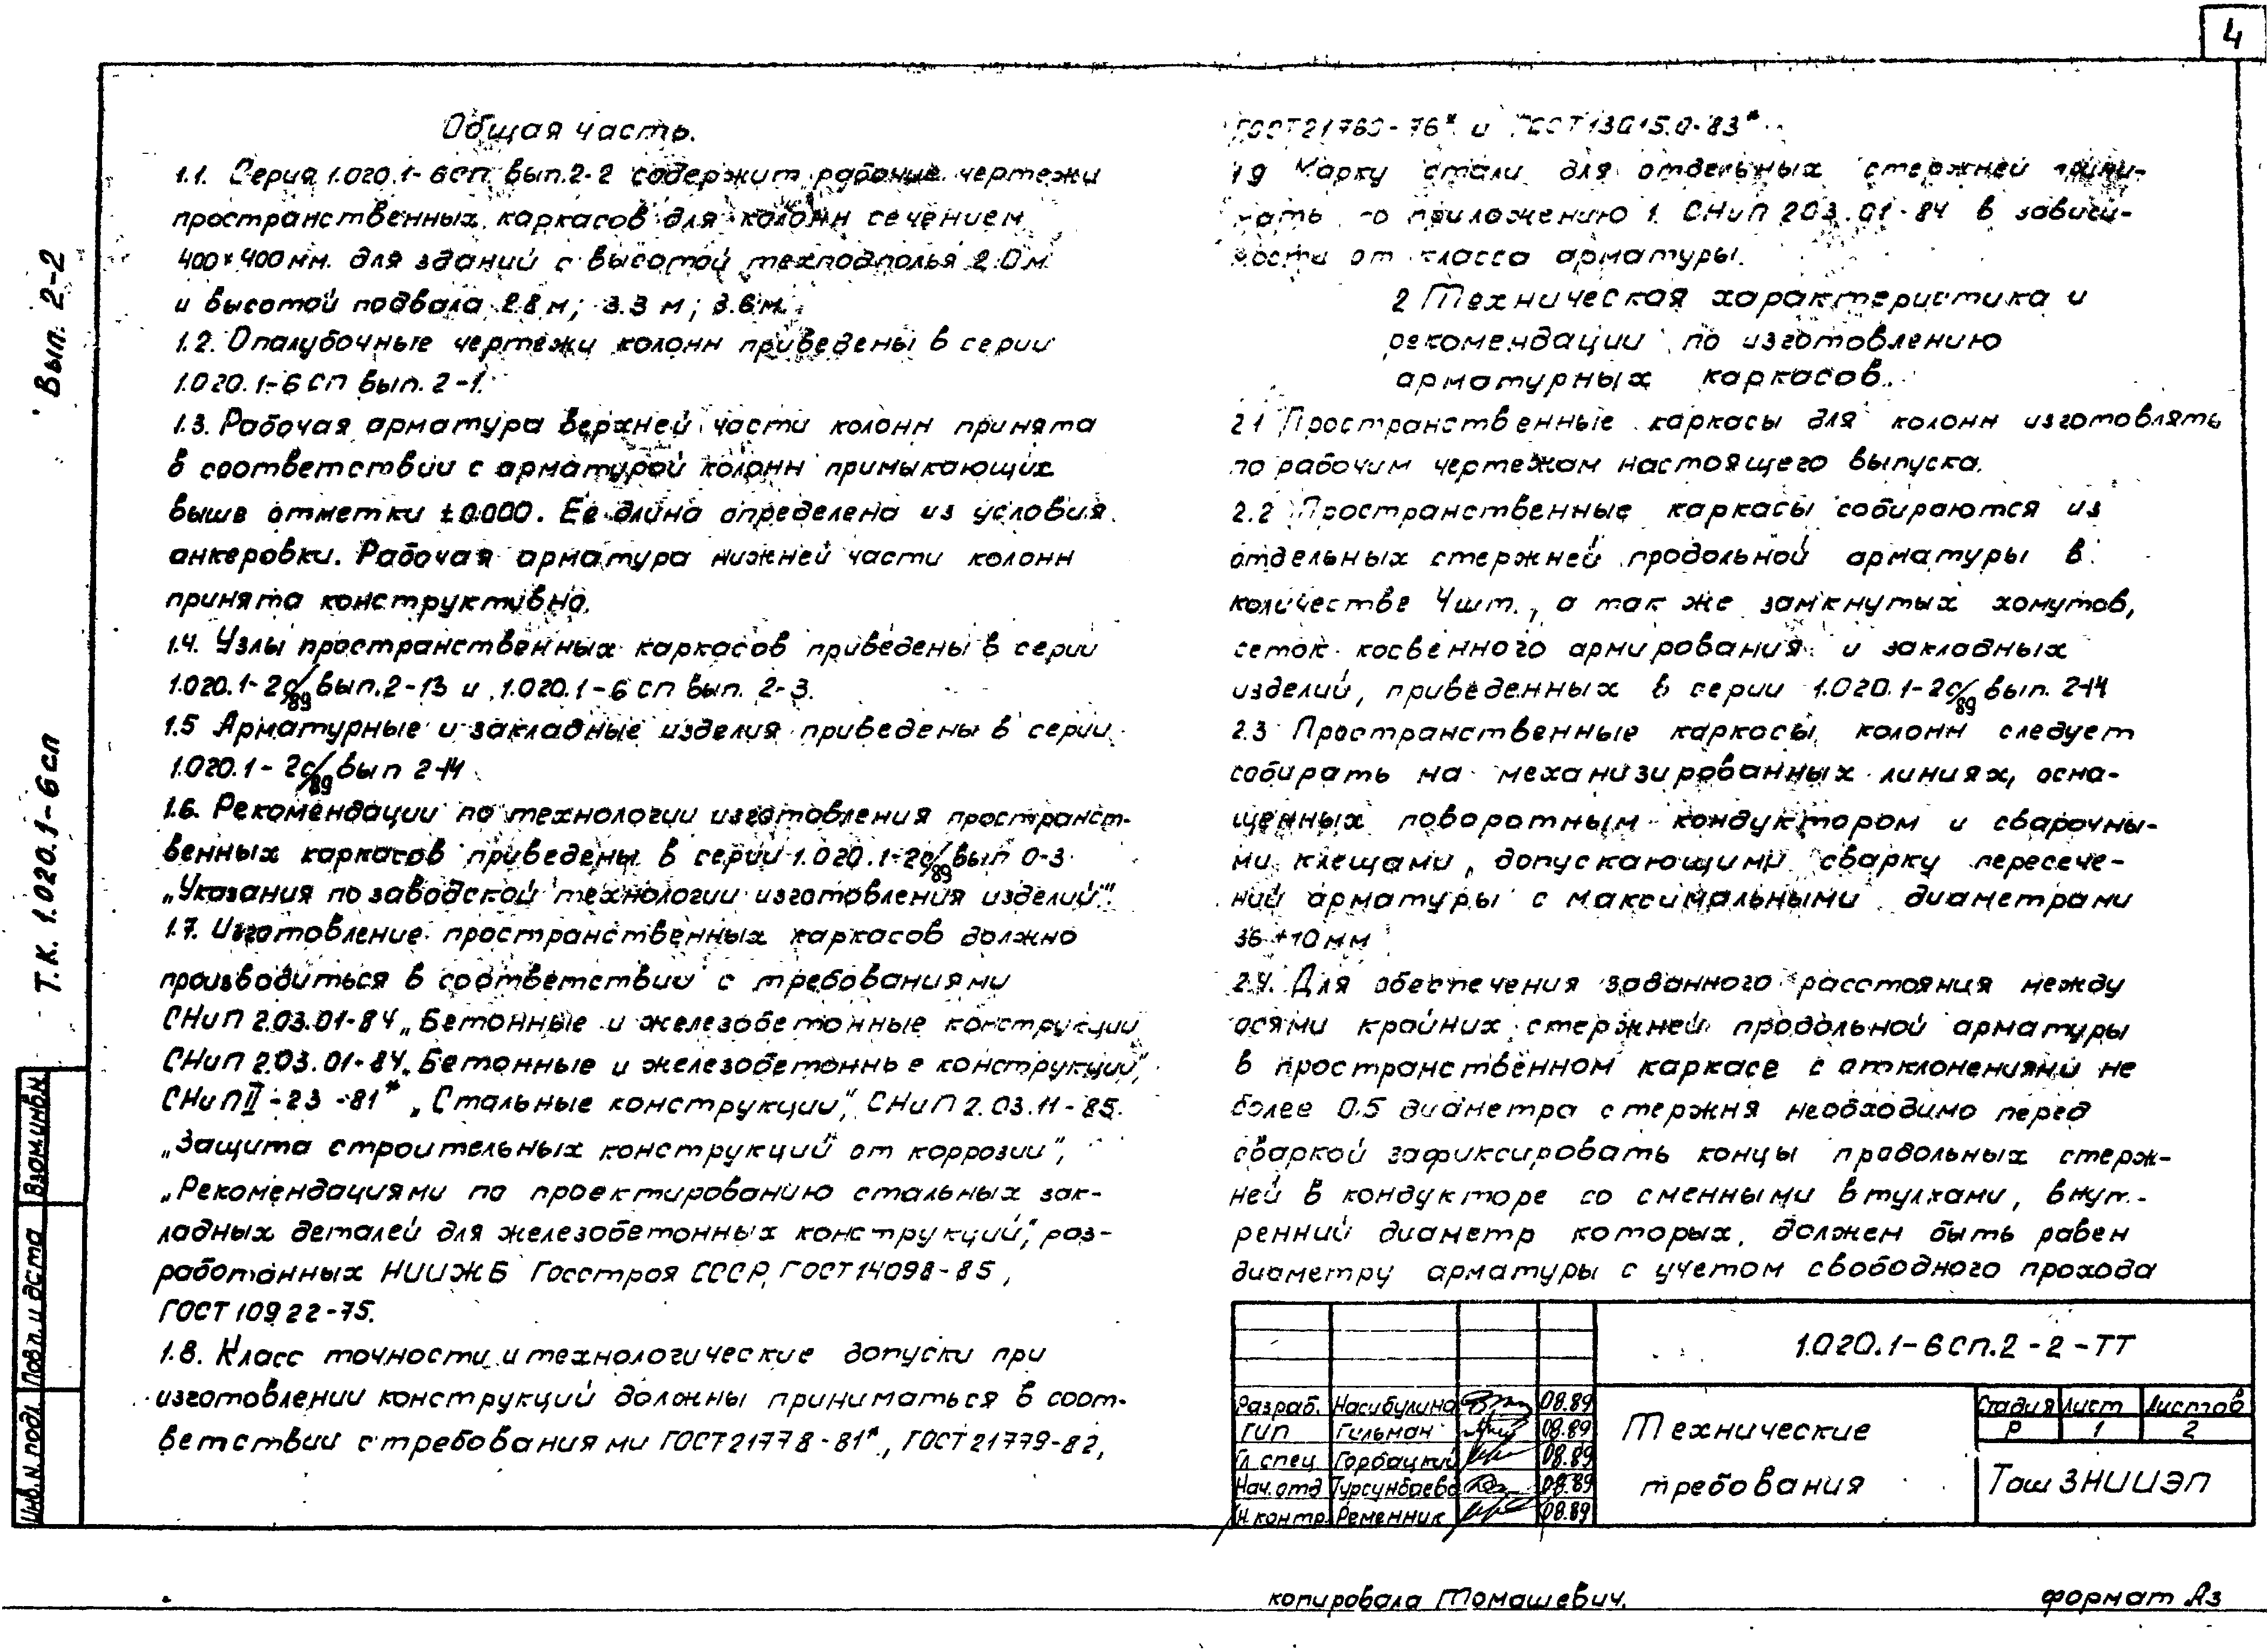 4
Общая часть.
1.1. Серия 1.020.1-6СП вып.2-2 содержит рабочие чертежи
пространственных каркасов для колонн сечением
400×400мм. для зданий с высотой техподполья 2.0м
и высотой подвала 2.8м; 3.3 м; 3.6м.
1.2. Опалубочные чертежи колонн приведены в серии
1.020.1-6СП вып.2-1.
1.3. Рабочая арматура верхней части колонн принята
в соответствии с арматурой колонн примыкающих
выше отметки ±0.000. Ее длина определена из условия
анкеровки. Рабочая арматура нижней части колонн
принята конструктивно.
1.4. Узлы пространственных каркасов приведены в серии
1.020.1-2с/89 вып.2-13 и 1.020.1-6сп вып. 2-3.
1.5 Арматурные и закладные изделия приведены в серии
1.020.1-2с/89 вып 2-14
1.6. Рекомендации по технологии изготовления пространст-
венных каркасов приведены в серии 1.020.1-2с/89 вып 0-3
„Указания по заводской технологии изготовления изделий".
1.7. Изготовление пространственных каркасов должно
производиться в соответствии с требованиями
СНиП 2.03.01-84 „Бетонные и железобетонные конструкции
СНиП 2.03.01-84 „Бетонные и железобетонные конструкции",
СНиП II-23-81* „Стальные конструкции", СНиП 2.03.11-85.
„Защита строительных конструкций от коррозии",
„Рекомендациями по проектированию стальных зак-
ладных деталей для железобетонных конструкций", раз-
работанных НИИЖБ Госстроя СССР, ГОСТ 14098-85,
ГОСТ 10922-75.
1.8. Класс точности и технологические допуски при
изготовлении конструкций должны приниматься в соот-
ветствии с требованиями ГОСТ 21778-81*, ГОСТ 21779-82,
ГОСТ 21780-76* и ГОСТ 13015.0-83*.
1.9 Марку стали для отдельных стержней прини-
мать по приложению 1. СНиП 2.03.01-84 в зависи-
мости от класса арматуры.
2 Техническая характеристика и
рекомендации по изготовлению
арматурных каркасов.
2.1 Пространственные каркасы для колонн изготовлять
по рабочим чертежам настоящего выпуска.
2.2 Пространственные каркасы собираются из
отдельных стержней продольной арматуры в
количестве 4шт., а так же замкнутых хомутов,
сеток косвенного армирования и закладных
изделий, приведенных в серии 1.020.1-2с/89 вып. 2-14
2.3 Пространственные каркасы колонн следует
собирать на механизированных линиях, осна-
щенных поворотным кондуктором и сварочны-
ми клещами, допускающими сварку пересече-
ний арматуры с максимальными диаметрами
36+10мм
2.4. Для обеспечения заданного расстояния между
осями крайних стержней продольной арматуры
в пространственном каркасе с отклонениями не
более 0.5 диаметра стержня необходимо перед
сваркой зафиксировать концы продольных стерж-
ней в кондукторе со сменными втулками, внут-
ренний диаметр которых, должен быть равен
диаметру арматуры с учетом свободного прохода
Вып. 2-2
Т.К. 1.020.1-6сп
Взам.инв.N
Подп. и дата
Инв.N подл
1.020.1-6сп.2-2-ТТ
Разраб. Насибулина 08.89
ГИП Гильман 08.89
Гл спец Горбацкий 08.89
Нач.отд Турсунбаева 08.89
Н.контр. Ременник 08.89
Технические
требования
Стадия Лист Листов
Р 1 2
Таш ЗНИИЭП
копировала Томашевич.
формат А3